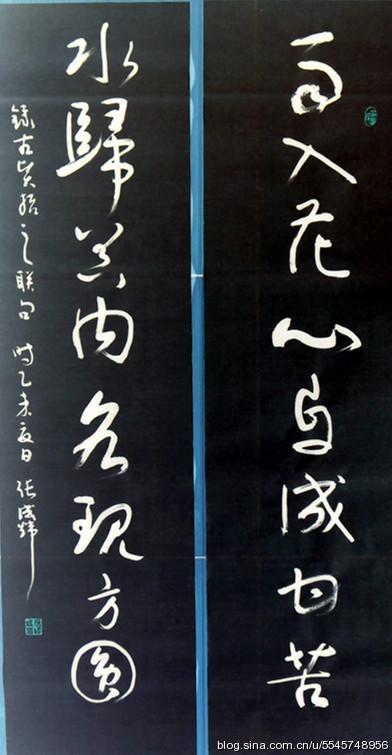 雨入花心自成甘苦
水歸器内各現方圓
錄古之聯句 時乙未夏日 張
blog.sina.com.cn/u/5545748956